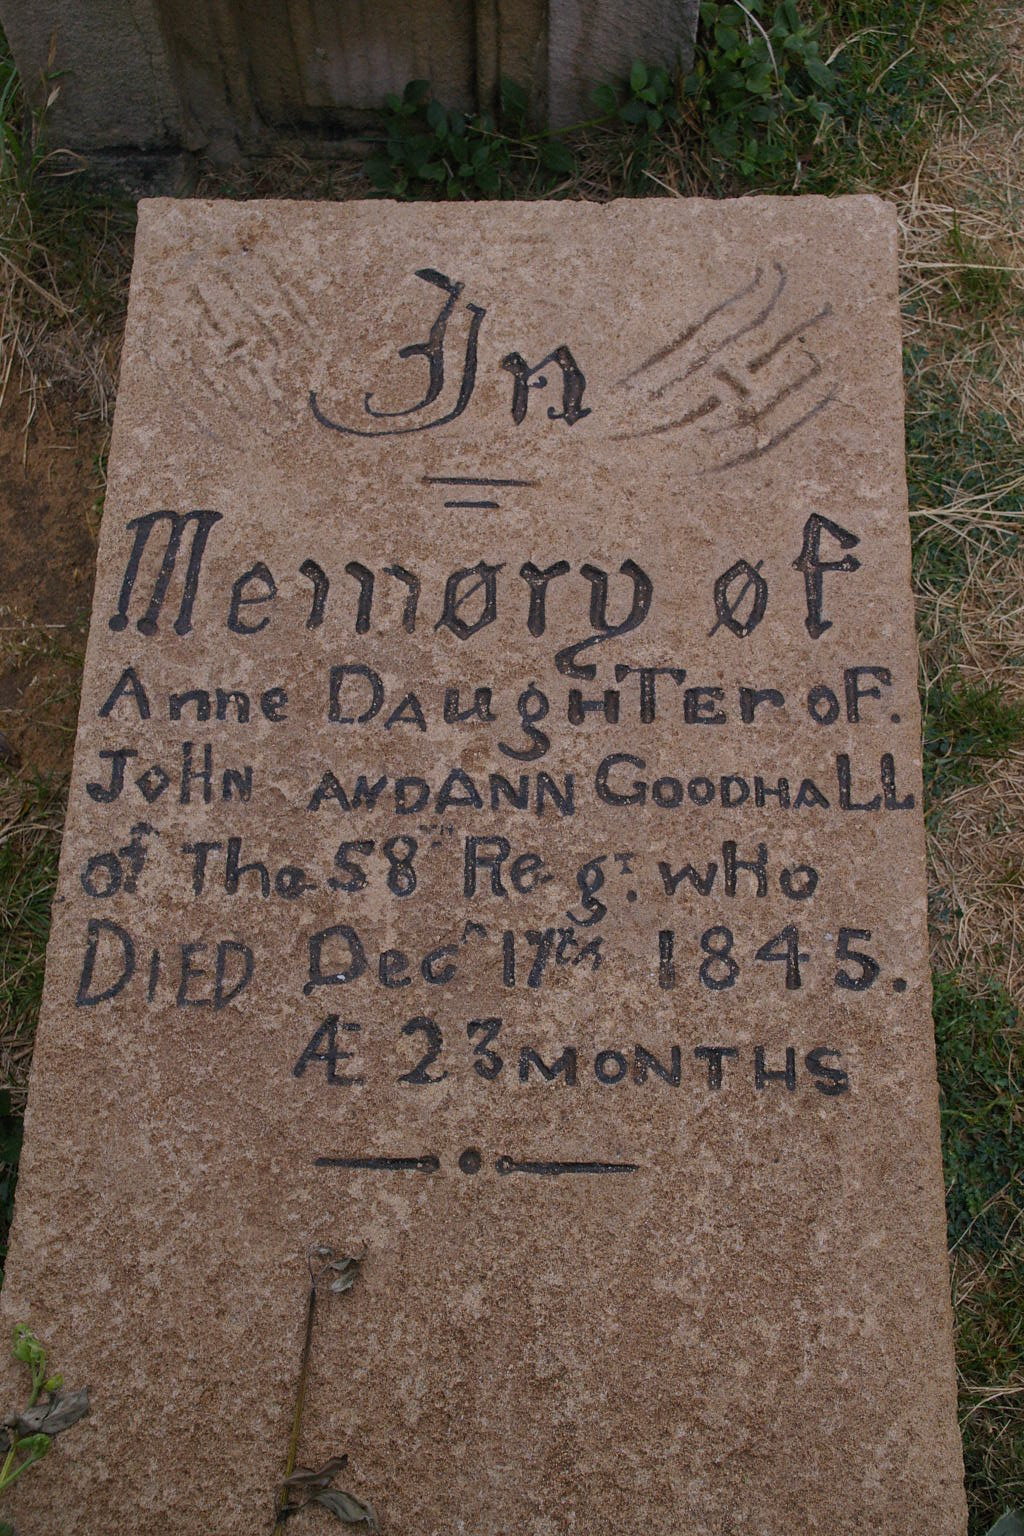 In
Memory of
Anne DAugHTEr oF.
JoHN ANDANN GOODHALL
of The 58th Regt. wHo
DIED Decr 17th 1845.
Æ 23 MONTHS